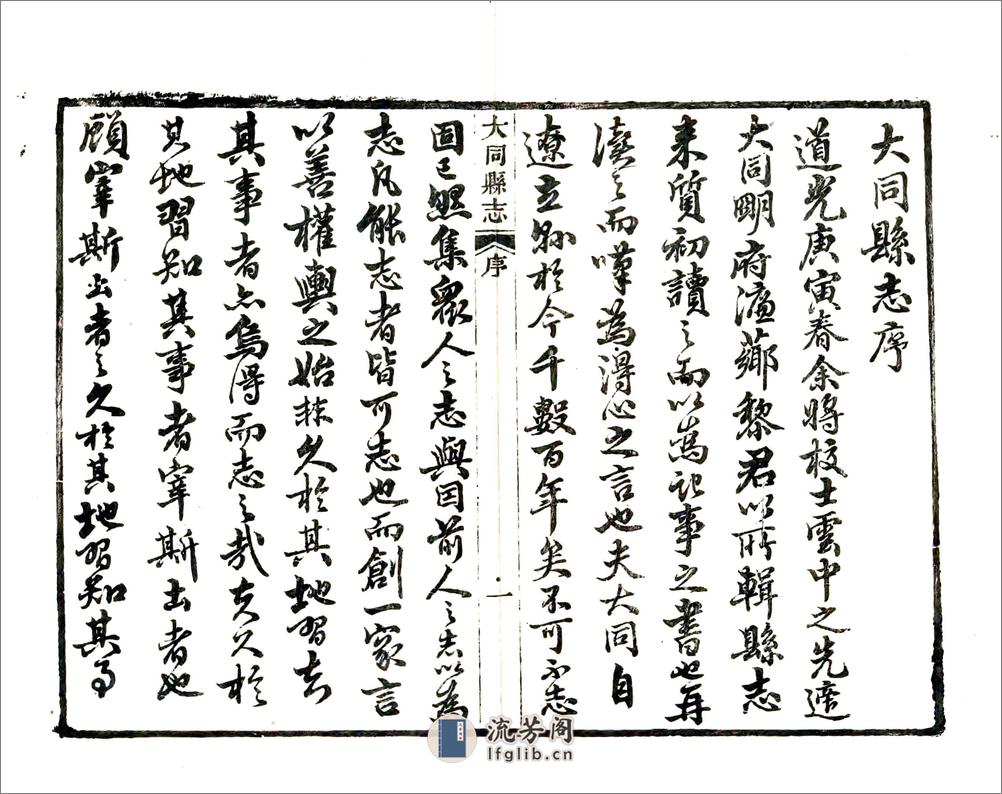 大同縣志序
道光庚寅春余將校士雲中之先
大同明府濂薌黎君以所輯縣志
來質初讀之而以為記事之書也再
讀之而嘆為得心之言也夫大同自
遼立縣於今千數百年矣不可不志
大同縣志
序
一
固已然集衆人之志與因前人之志以為
志凡能志者皆可志也而創一家言
以善權輿之始非久於其地習知
其事者亦烏得而志之哉夫久於
其地習知其事者宰斯土者也
顧宰斯土者之久於其地習知其事
流芳阁
lfglib.cn